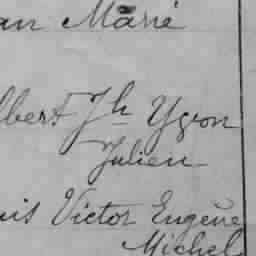 an Marie
lbert Jh Yvon
Julien
uis Victor Eugène
Michel